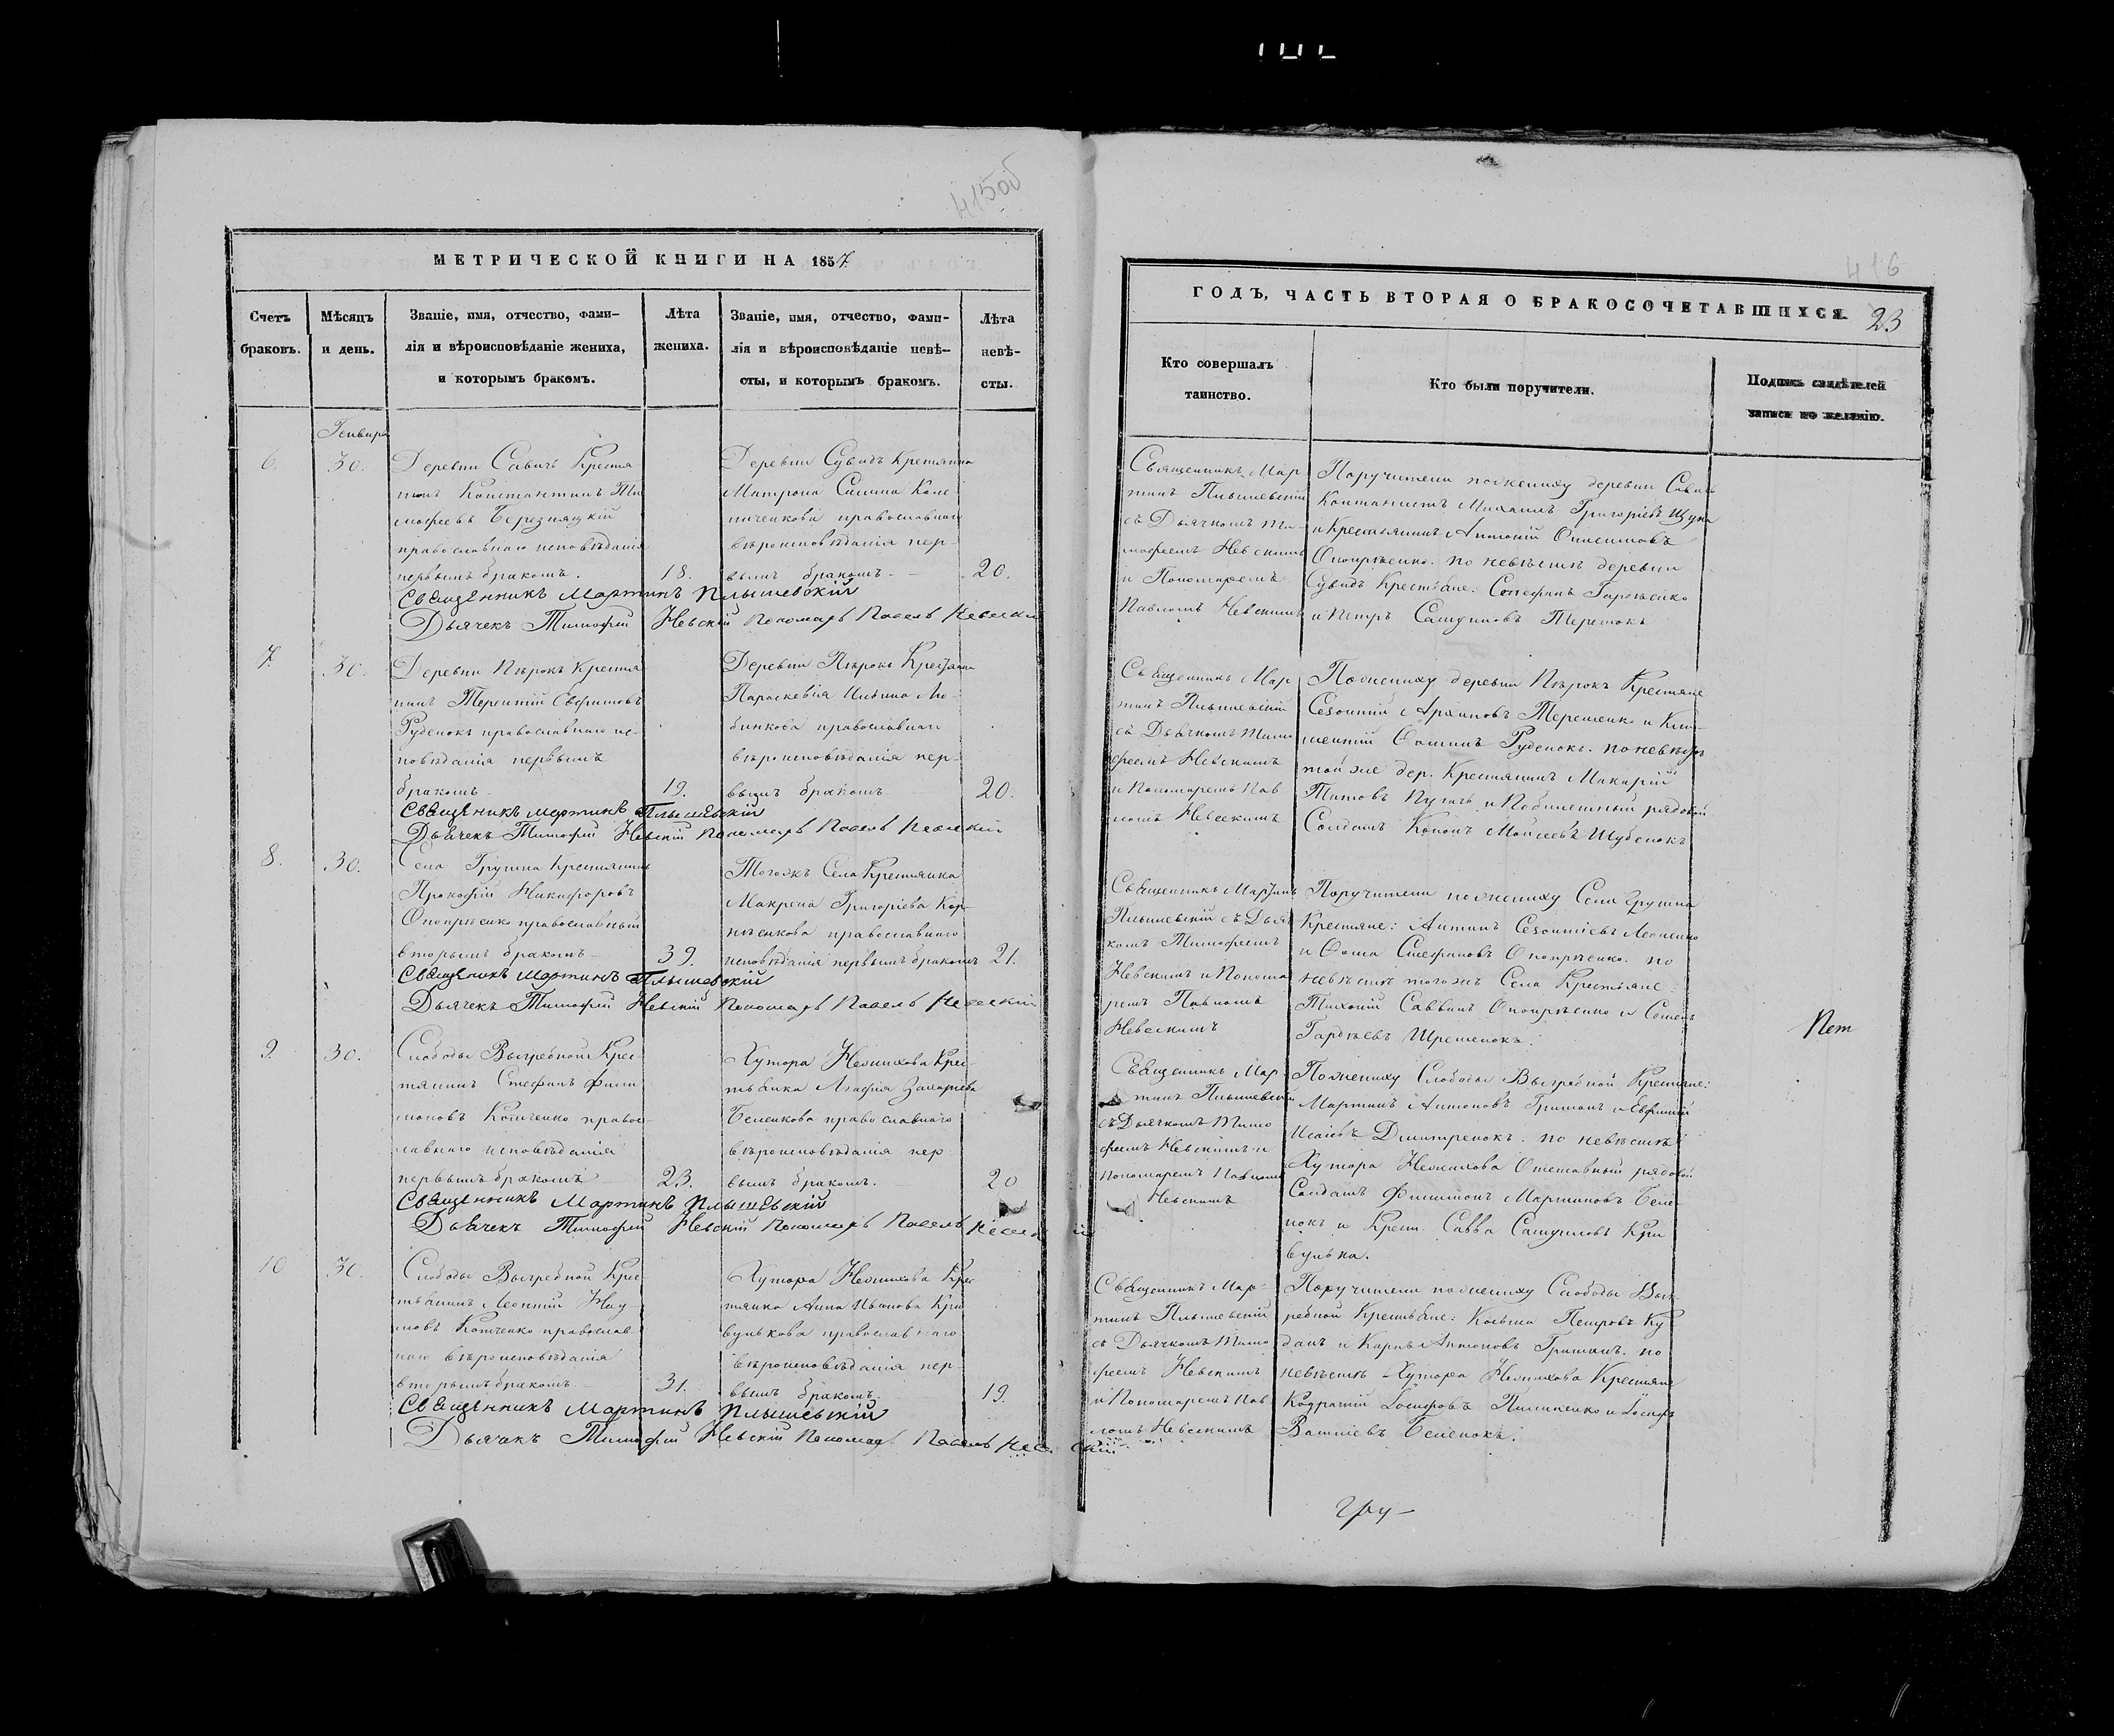 415об
МЕТРИЧЕСКОЙ КНИГИ НА 1857.
Счетъ браковъ.
Мѣсяцъ и день.
Званіе, имя, отчество, фами-
лія и вѣроисповѣданіе жениха,
и которымъ бракомъ.
Лѣта жениха.
Званіе, имя, отчество, фами-
лія и вѣроисповѣданіе невѣ-
сты, и которымъ бракомъ.
Лѣта невѣ-
сты.
Генваря
6.
30.
Деревни Савичь Крестья
нинъ Константинъ Ти
мофеевъ Березняцкій
православнаго исповѣданія
первымъ бракомъ.
18.
Деревни Сувидъ Крестянка
Матрона Савина Коно-
ниченкова православнаго
вѣроисповѣданія пер-
вымъ бракомъ.
20.
Священникъ Мартинъ Плышевскій
Дьячекъ Тимофей Невскій Пономарь Павелъ Невскій
7.
30.
Деревни Пѣрокъ Крестья
нинъ Терентій Евфимовъ
Руденокъ православнаго ис-
повѣданія первымъ
бракомъ
19.
Деревни Пѣрокъ Крестянка
Параскевія Ильина Лю-
бинкова православнаго
вѣроисповѣданія пер-
вымъ бракомъ
20.
Священикъ Мартинъ Плышевскій
Дьячекъ Тимофей Невскій Пономарь Павелъ Невскій
8.
30.
Села Грушна Крестянинъ
Прокофій Никифоровъ
Опопрѣенко православный
вторымъ бракомъ
39.
Тогожъ Села Крестянка
Макрена Григоріева Кор-
нѣенкова православнаго
исповѣданія первымъ бракомъ
21.
Священикъ Мартинъ Плышевскій
Дьячекъ Тимофей Невскій Пономарь Павелъ Невскій
9.
30.
Слободы Выгребной Крес
тянинъ Стефанъ Фили
моновъ Котченко правос-
лавнаго исповѣданія
первымъ бракомъ
23.
Хутора Неспихова Крес-
тьянка Агафія Захаріева
Беленкова православнаго
вѣроисповѣданія пер-
вымъ бракомъ.
20
Священникъ Мартинъ Плышевскій
Дьячекъ Тимофей Невскій Пономарь Павелъ Невскій
10
30.
Слободы Выгребной Крес
тьянинъ Леонтій Нау-
мовъ Котченко православ-
наго вѣроисповѣданія
вторымъ бракомъ.
31.
Хутора Неспихова Крес
тянка Анна Иванова Кри
вулькова православнаго
вѣроисповѣданія пер-
вымъ бракомъ.
19.
Священникъ Мартинъ Плышевскій
Дьячекъ Тимофей Невскій Пономарь Павелъ Невскій
416
ГОДЪ, ЧАСТЬ ВТОРАЯ О БРАКОСОЧЕТАВШИХСЯ.
23
Кто совершалъ
таинство.
Кто были поручители.
Подпись свидѣтелей
записи по желанію.
Священникъ Мар
тинъ Плышевскій
съ Дьячкомъ Ти-
мофеемъ Невскимъ
и Пономаремъ
Павломъ Невскимъ
Поручители пожениху деревни Савичь
Кантонистъ Михаилъ Григоріевъ Щука
и Крестьянинъ Антоній Онисимовъ
Опопрѣенко. по невѣстѣ деревни
Сувидъ Крестьяне: Стефанъ
и Петръ Самуиловъ
Священникъ Мар
тинъ Плышевскій
съ Дьячкомъ Тимо
феемъ Невскимъ
и Пономаремъ Пав
ломъ Невскимъ
Пожениху деревни Пѣрокъ Крестяне
Созонтій Архиповъ Терещенко и Кли-
ментій Фоминъ Руденокъ. по невѣстѣ
той же дер. Крестянинъ Макарій
Титовъ Пугачъ и Побилетный рядовой
Солдатъ Кононъ Моисеевъ Шубенокъ
Священникъ Мартинъ
Плышевскій съ Дьяч
комъ Тимофеемъ
Невскимъ и Понома
ремъ Павломъ
Невскимъ
Поручители пожениху Села Грушна
Крестяне: Антипъ Созонтіевъ
и Фома Стефановъ Опопрѣенко. по
невѣстѣ тогожъ Села Крестьяне:
Тихоній Саввинъ Опопрѣенко и Семенъ
Гордѣевъ
Нет
Священникъ Мар
тинъ Плышевскій
съ Дьячкомъ Тимо
феемъ Невскимъ и
пономаремъ Павломъ
Невскимъ
Пожениху Слободы Выгребной Крестяне:
Мартинъ Антоновъ Гришанъ и Евфимій
Исаіевъ Дмитренокъ. по невѣстѣ
Хутора Неспихова Отставный рядовой
Солдатъ Филимонъ Мартиновъ Беле-
нокъ и Крест. Савва Самуиловъ Кри
вулька.
Священникъ Мар-
тинъ Плышевскій
съ Дьячкомъ Тимо
феемъ Невскимъ
и Пономаремъ Пав
ломъ Невскимъ
Поручители пожениху Слободы Выг-
ребной Крестьяне: Косьма Петровъ Ку
данъ и Карпъ Антоновъ Гришанъ. по
невѣстѣ Хутора Неспихова Крестяне
Кодратій Іосифовъ Пилипенко и Іосифъ
Беленокъ.